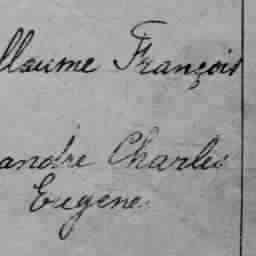 llaume François
andre Charles
Eugène